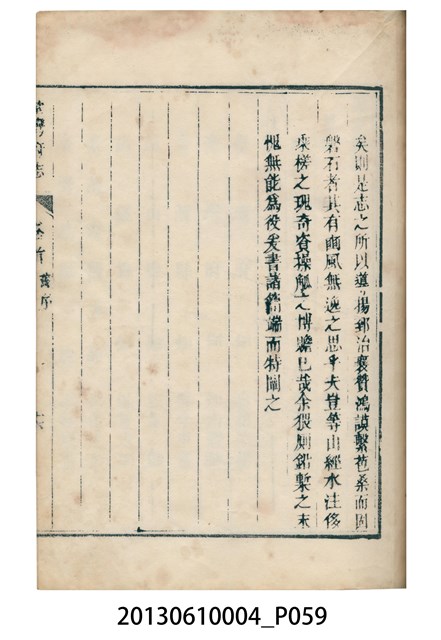 矣則是志之所以導揚郅治襄贊鴻謨繫苞桑而固
磐石者其有豳風無逸之思乎夫豈等山經水注侈
乘槎之瑰奇資操觚之博鑒已哉余猥廁鉛槧之末
愧無能為役爰書諸簡端而特闡之
志
卷首 舊序
20130610004_P059